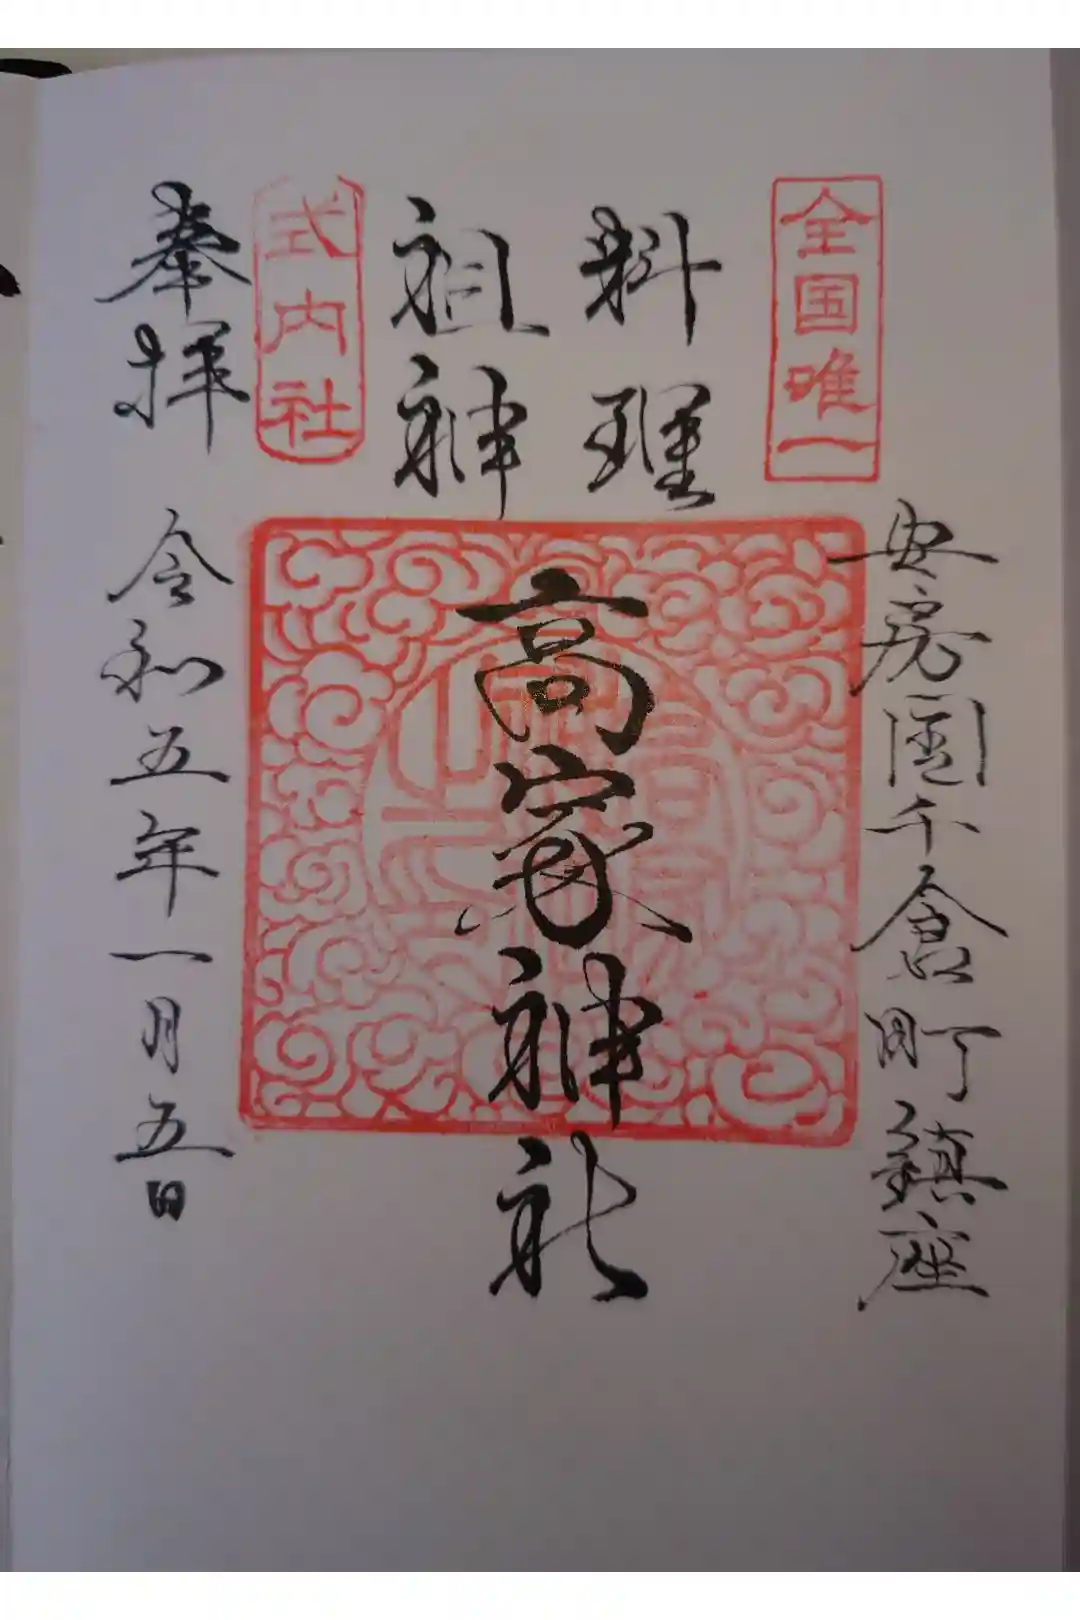 全国唯一
安房国千倉町鎮座
料理
祖神
高家神社
式内社
奉拝
令和五年一月五日